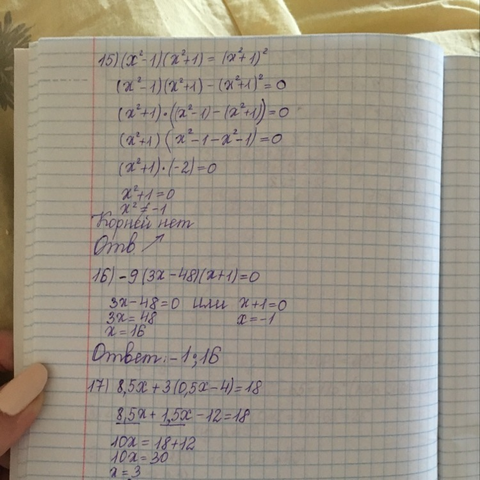 15) (x²-1)(x²+1) = (x²+1)²
(x²-1)(x²+1) - (x²+1)² = 0
(x²+1)·(x²-1) - (x²+1)) = 0
(x²+1)(x²-1-x²-1) = 0
(x²+1)·(-2) = 0
x²+1=0
x² ≠ -1
Корней нет
Отв ↗
16) -9(3x-48)(x+1)=0
3x-48=0 или x+1=0
3x=48 x=-1
x=16
Ответ: -1; 16
17) 8,5x+3(0,5x-4)=18
8,5x+1,5x-12=18
10x=18+12
10x=30
x=3